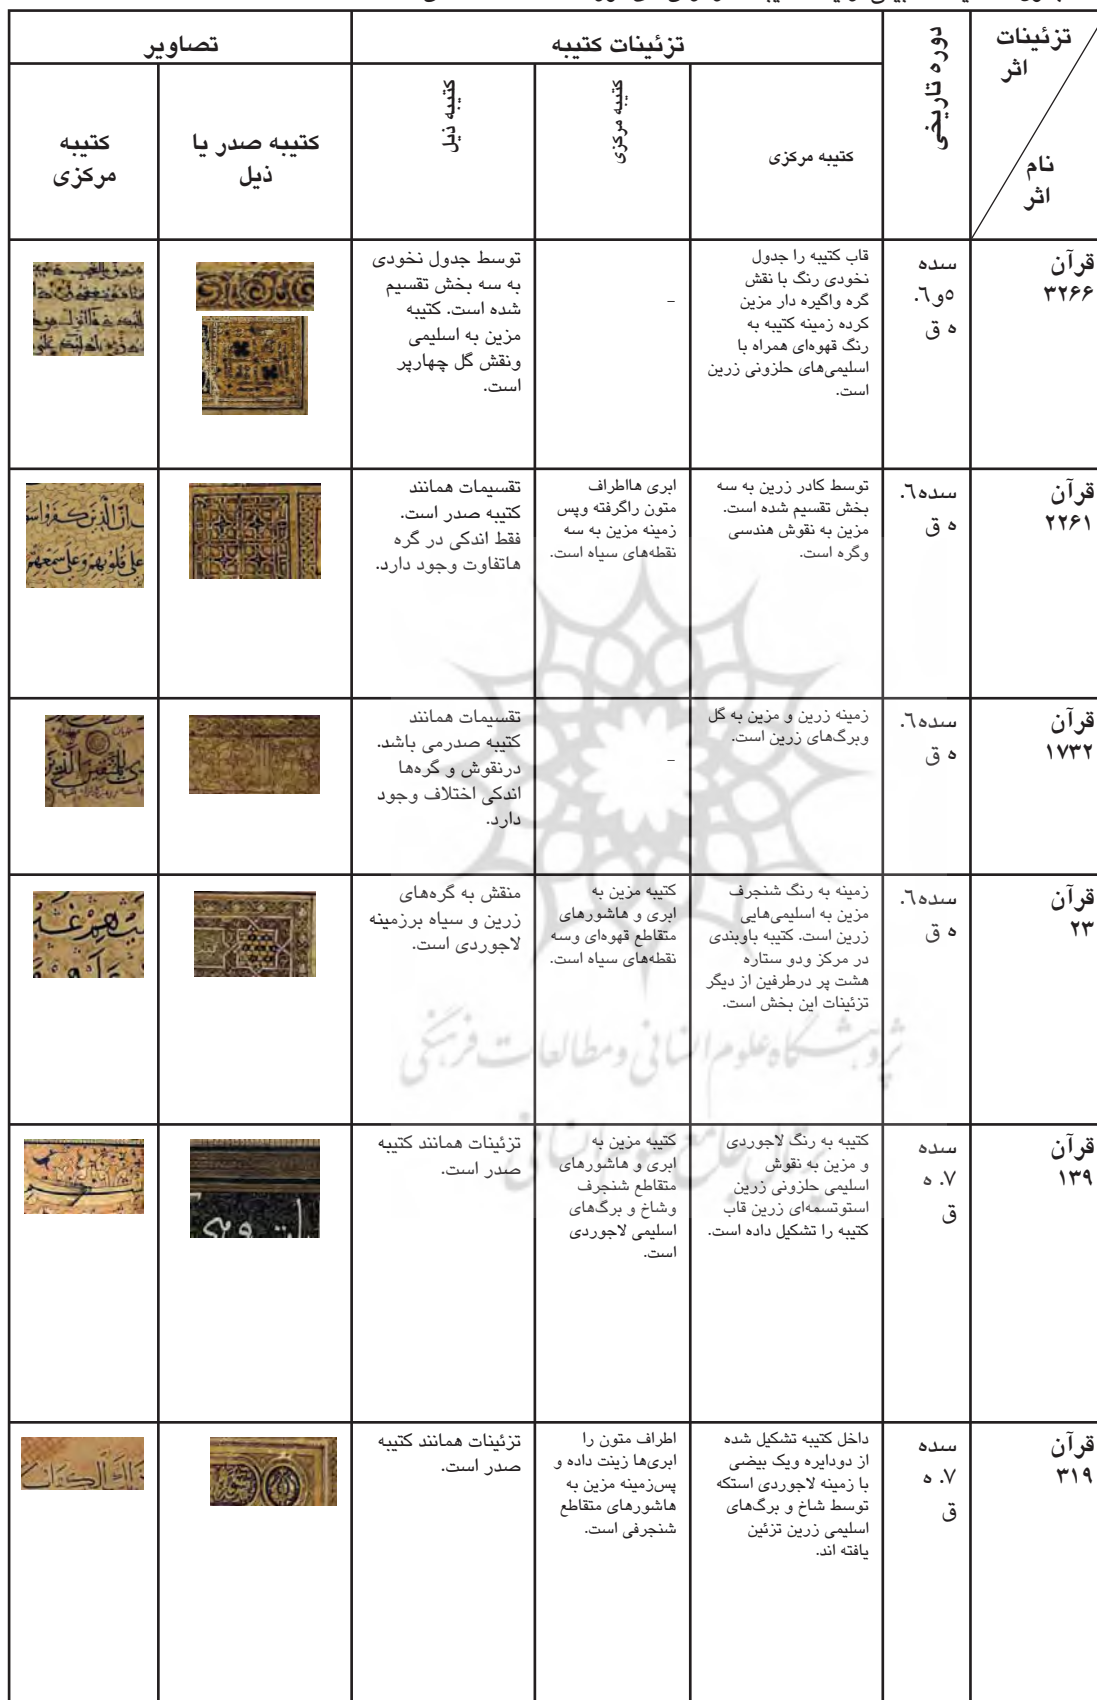 تزئینات
اثر
نام
اثر
دوره تاریخی
تزئینات کتیبه
تصاویر
کتیبه مرکزی
کتیبه مرکزی
کتیبه ذیل
کتیبه صدر یا
ذیل
کتیبه
مرکزی
قرآن
۳۲۶۶
سده
٥و٦.
ه ق
قاب کتیبه را جدول
نخودی رنگ با نقش
گره واگیره دار مزین
کرده زمینه کتیبه به
رنگ قهوه‌ای همراه با
اسلیمی‌های حلزونی زرین
است.
–
توسط جدول نخودی
به سه بخش تقسیم
شده است. کتیبه
مزین به اسلیمی
ونقش گل چهارپر
است.
قرآن
۲۲۶۱
سده٦.
ه ق
توسط کادر زرین به سه
بخش تقسیم شده است.
مزین به نقوش هندسی
وگره است.
ابری هااطراف
متون راگرفته وپس
زمینه مزین به سه
نقطه‌های سیاه است.
تقسیمات همانند
کتیبه صدر است.
فقط اندکی در گره
هاتفاوت وجود دارد.
قرآن
۱۷۳۲
سده٦.
ه ق
زمینه زرین و مزین به گل
وبرگ‌های زرین است.
–
تقسیمات همانند
کتیبه صدرمی باشد.
درنقوش و گره‌ها
اندکی اختلاف وجود
دارد.
قرآن
۲۳
سده٦.
ه ق
زمینه به رنگ شنجرف
مزین به اسلیمی‌هایی
زرین است. کتیبه باوبندی
در مرکز ودو ستاره
هشت پر درطرفین از دیگر
تزئینات این بخش است.
کتیبه مزین به
ابری و هاشورهای
متقاطع قهوه‌ای وسه
نقطه‌های سیاه است.
منقش به گره‌های
زرین و سیاه برزمینه
لاجوردی است.
پژوهشگاه علوم انسانی و مطالعات فرهنگی
پرتال جامع علوم انسانی
قرآن
۱۳۹
سده
٧. ه
ق
کتیبه به رنگ لاجوردی
و مزین به نقوش
اسلیمی حلزونی زرین
استوتسمه‌ای زرین قاب
کتیبه را تشکیل داده است.
کتیبه مزین به
ابری و هاشورهای
متقاطع شنجرف
وشاخ و برگ‌های
اسلیمی لاجوردی
است.
تزئینات همانند کتیبه
صدر است.
قرآن
۳۱۹
سده
٧. ه
ق
داخل کتیبه تشکیل شده
از دودایره ویک بیضی
با زمینه لاجوردی استکه
توسط شاخ و برگ‌های
اسلیمی زرین تزئین
یافته اند.
اطراف متون را
ابری‌ها زینت داده و
پس‌زمینه مزین به
هاشورهای متقاطع
شنجرفی است.
تزئینات همانند کتیبه
صدر است.